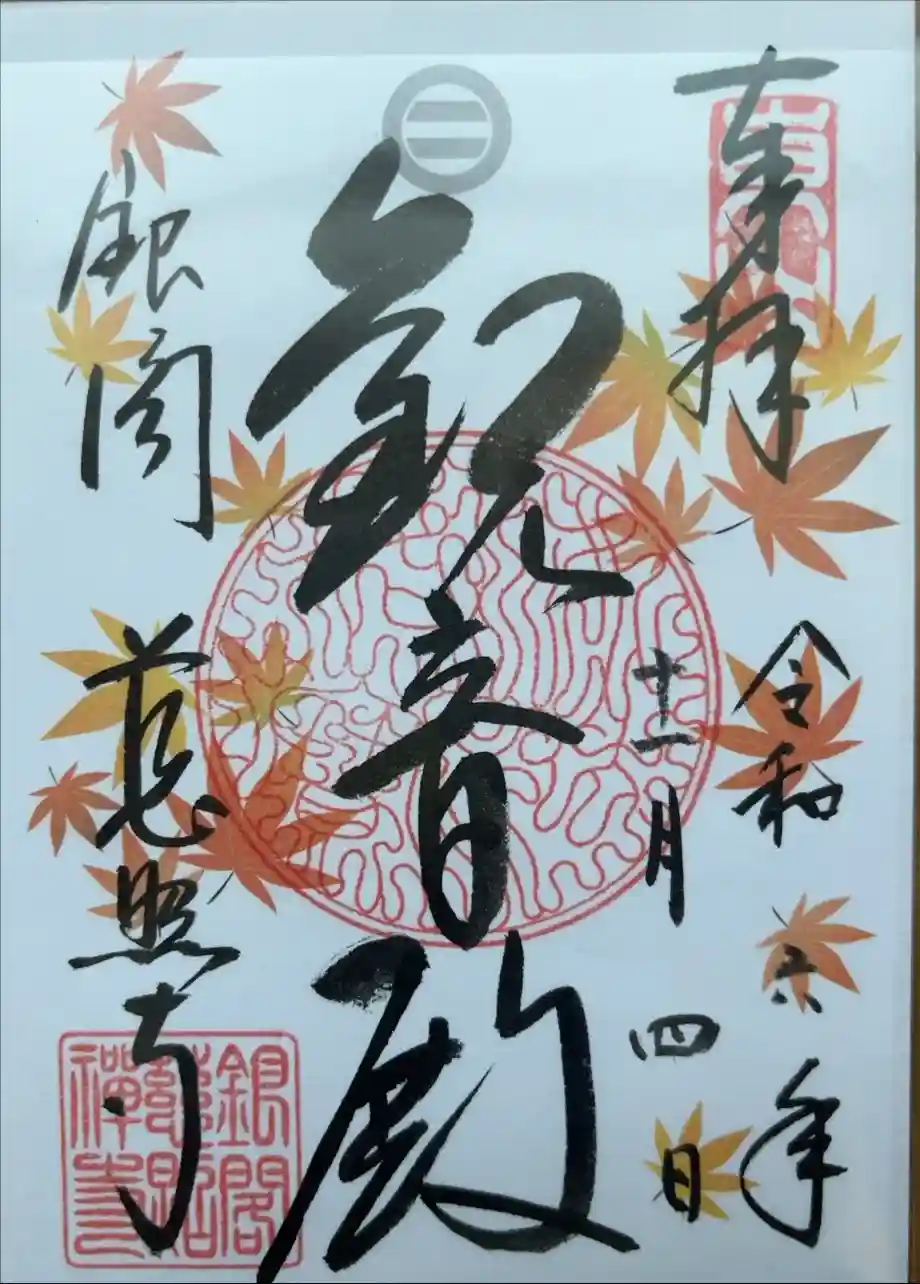 奉拝
令和六年
十一月四日
観音殿
銀閣
慈照寺
銀閣
慈照
禪寺